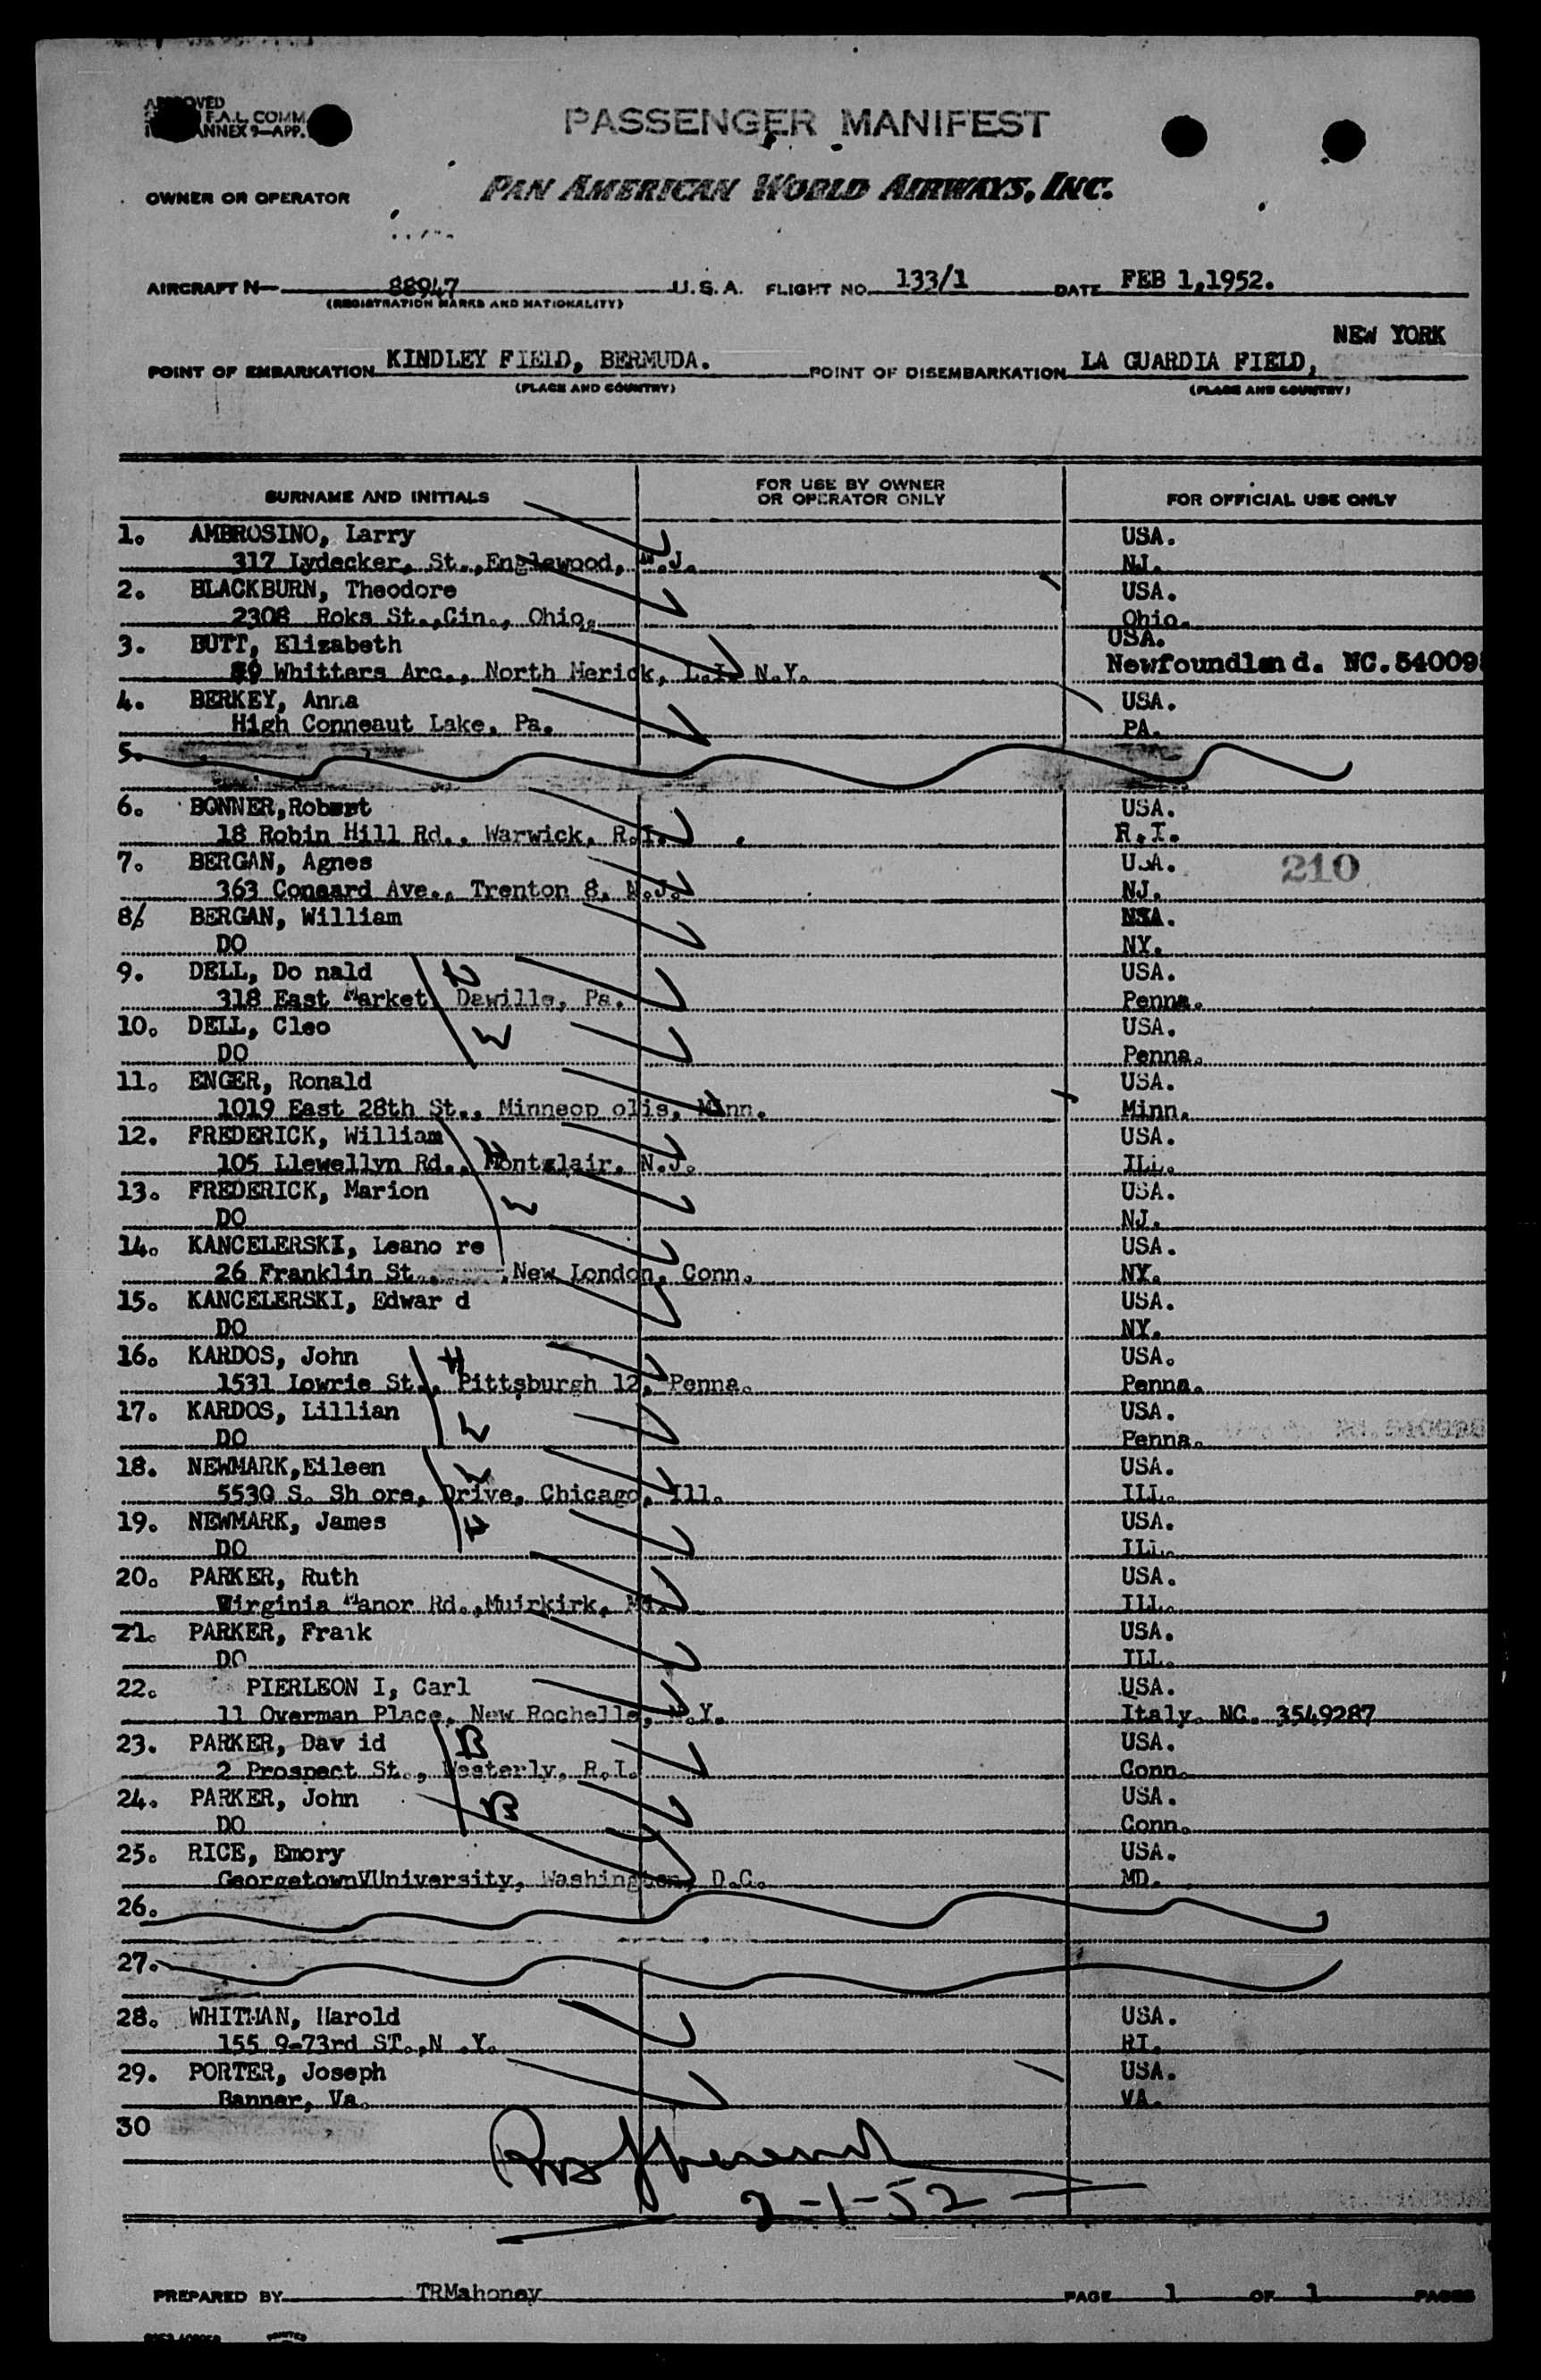 PASSENGER MANIFEST
F.A.L. COMM
ANNEX 9—APP.
OWNER OR OPERATOR PAN AMERICAN WORLD AIRWAYS, INC.
AIRCRAFT N— 88947 U.S.A. FLIGHT NO. 133/1 DATE FEB 1,1952.
(REGISTRATION MARKS AND NATIONALITY)
NEW YORK
POINT OF EMBARKATION KINDLEY FIELD, BERMUDA. POINT OF DISEMBARKATION LA GUARDIA FIELD,
(PLACE AND COUNTRY) (PLACE AND COUNTRY)
SURNAME AND INITIALS FOR USE BY OWNER OR OPERATOR ONLY FOR OFFICIAL USE ONLY
1. AMBROSINO, Larry USA.
317 Lydecker, St.,Englewood, N.J. NJ.
2. BLACKBURN, Theodore USA.
2308 Roks St.,Cin., Ohio. Ohio.
3. BUTT, Elizabeth USA.
89 Whitters Arc., North Merick, L.I. N.Y. Newfoundlan d. NC.54009
4. BERKEY, Anna USA.
High Conneaut Lake, Pa. PA.
5.
6. BONNER,Robert USA.
18 Robin Hill Rd., Warwick, R.I. R.I.
7. BERGAN, Agnes USA. 210
363 Conaard Ave., Trenton 8, N.J. NJ.
8. BERGAN, William USA.
DO NY.
9. DELL, Do nald H USA.
318 East Market, Dawille, Pa. Penna.
10. DELL, Cleo W USA.
DO Penna.
11. ENGER, Ronald USA.
1019 East 28th St., Minneop olis, Minn. Minn.
12. FREDERICK, William H USA.
105 Llewellyn Rd., Montclair, N.J. ILL.
13. FREDERICK, Marion W USA.
DO NJ.
14. KANCELERSKI, Leano re USA.
26 Franklin St., ,New London, Conn. NY.
15. KANCELERSKI, Edwar d USA.
DO NY.
16. KARDOS, John H USA.
1531 Lowrie St., Pittsburgh 12, Penna. Penna.
17. KARDOS, Lillian W USA.
DO Penna.
18. NEWMARK,Eileen W USA.
5530 S. Sh ore, Drive, Chicago, Ill. ILL.
19. NEWMARK, James H USA.
DO ILL.
20. PARKER, Ruth USA.
Virginia Manor Rd.,Muirkirk, Md. ILL.
21. PARKER, Frank USA.
DO ILL.
22. PIERLEON I, Carl USA.
11 Overman Place, New Rochelle, N.Y. Italy. NC. 3549287
23. PARKER, Dav id B USA.
2 Prospect St., Westerly, R.I. Conn.
24. PARKER, John B USA.
DO Conn.
25. RICE, Emory USA.
GeorgetownVUniversity, Washington, D.C. MD.
26.
27.
28. WHITMAN, Harold USA.
155 9-73rd ST.,N .Y. RI.
29. PORTER, Joseph USA.
Banner, Va. VA.
30
2-1-52
PREPARED BY TRMahoney PAGE 1 OF 1 PAGES